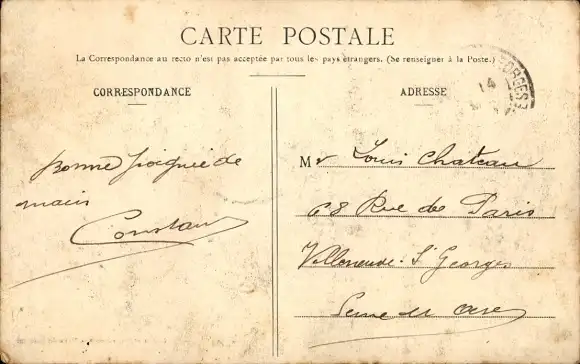 CARTE POSTALE
La Correspondance au recto n'est pas acceptée par tous les pays étrangers. (Se renseigner à la Poste.)
CORRESPONDANCE
ADRESSE
14
Bonne poignée de
main
Constant
Mr Louis Chateau
68 Rue de Paris
Villeneuve-St Georges
Seine et Oise